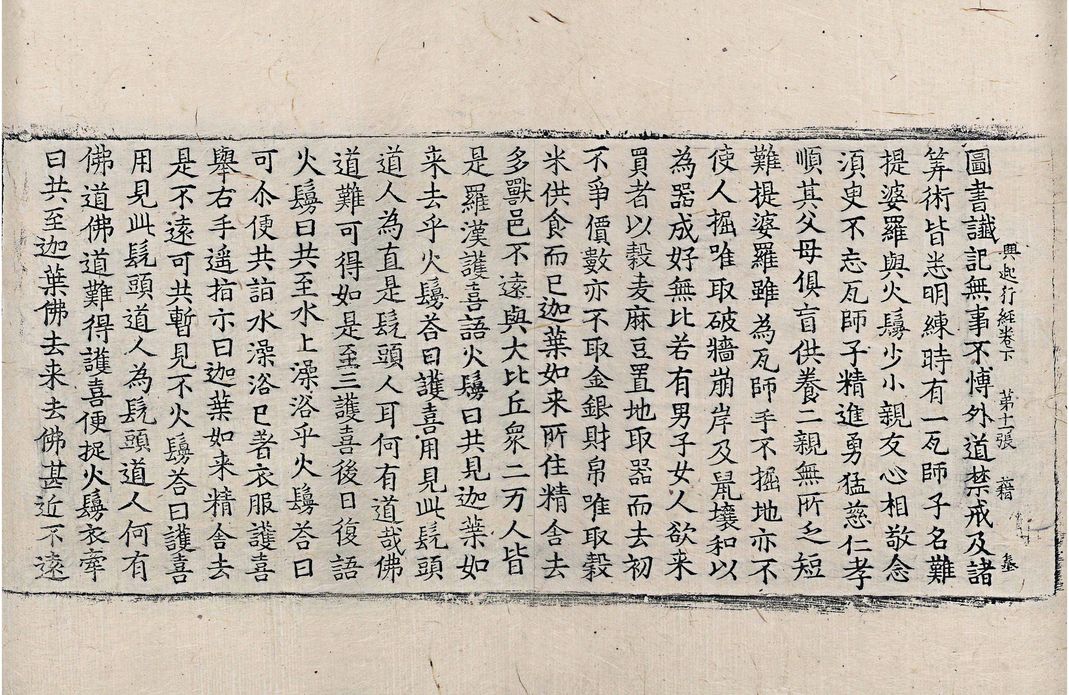 興起行經卷下　第十一張　藉
圖書讖記無事不愽外道禁戒及諸
筭術皆悉明練時有一瓦師子名難
提婆羅與火鬘少小親友心相敬念
湏臾不忘瓦師子精進勇猛慈仁孝
順其父母俱盲供養二親無所乏短
難提婆羅雖為瓦師手不掘地亦不
使人掘唯取破牆崩岸及鼠壤和以
為器成好無比若有男子女人欲来
買者以糓麦麻豆置地取器而去初
不爭價數亦不取金銀財帛唯取糓
米供食而已迦葉如来所住精舎去
多獸邑不遠與大比丘衆二万人皆
是羅漢護喜語火鬘曰共見迦葉如
来去乎火鬘荅曰護喜用見此髠頭
道人為直是髠頭人耳何有道哉佛
道難可得如是至三護喜後日復語
火鬘曰共至水上澡浴乎火鬘荅曰
可尒便共詣水澡浴已著衣服護喜
舉右手遥指示曰迦葉如来精舎去
是不遠可共暫見不火鬘荅曰護喜
用見此髠頭道人為髠頭道人何有
佛道佛道難得護喜便捉火鬘衣牽
曰共至迦葉佛去来去佛甚近不遠